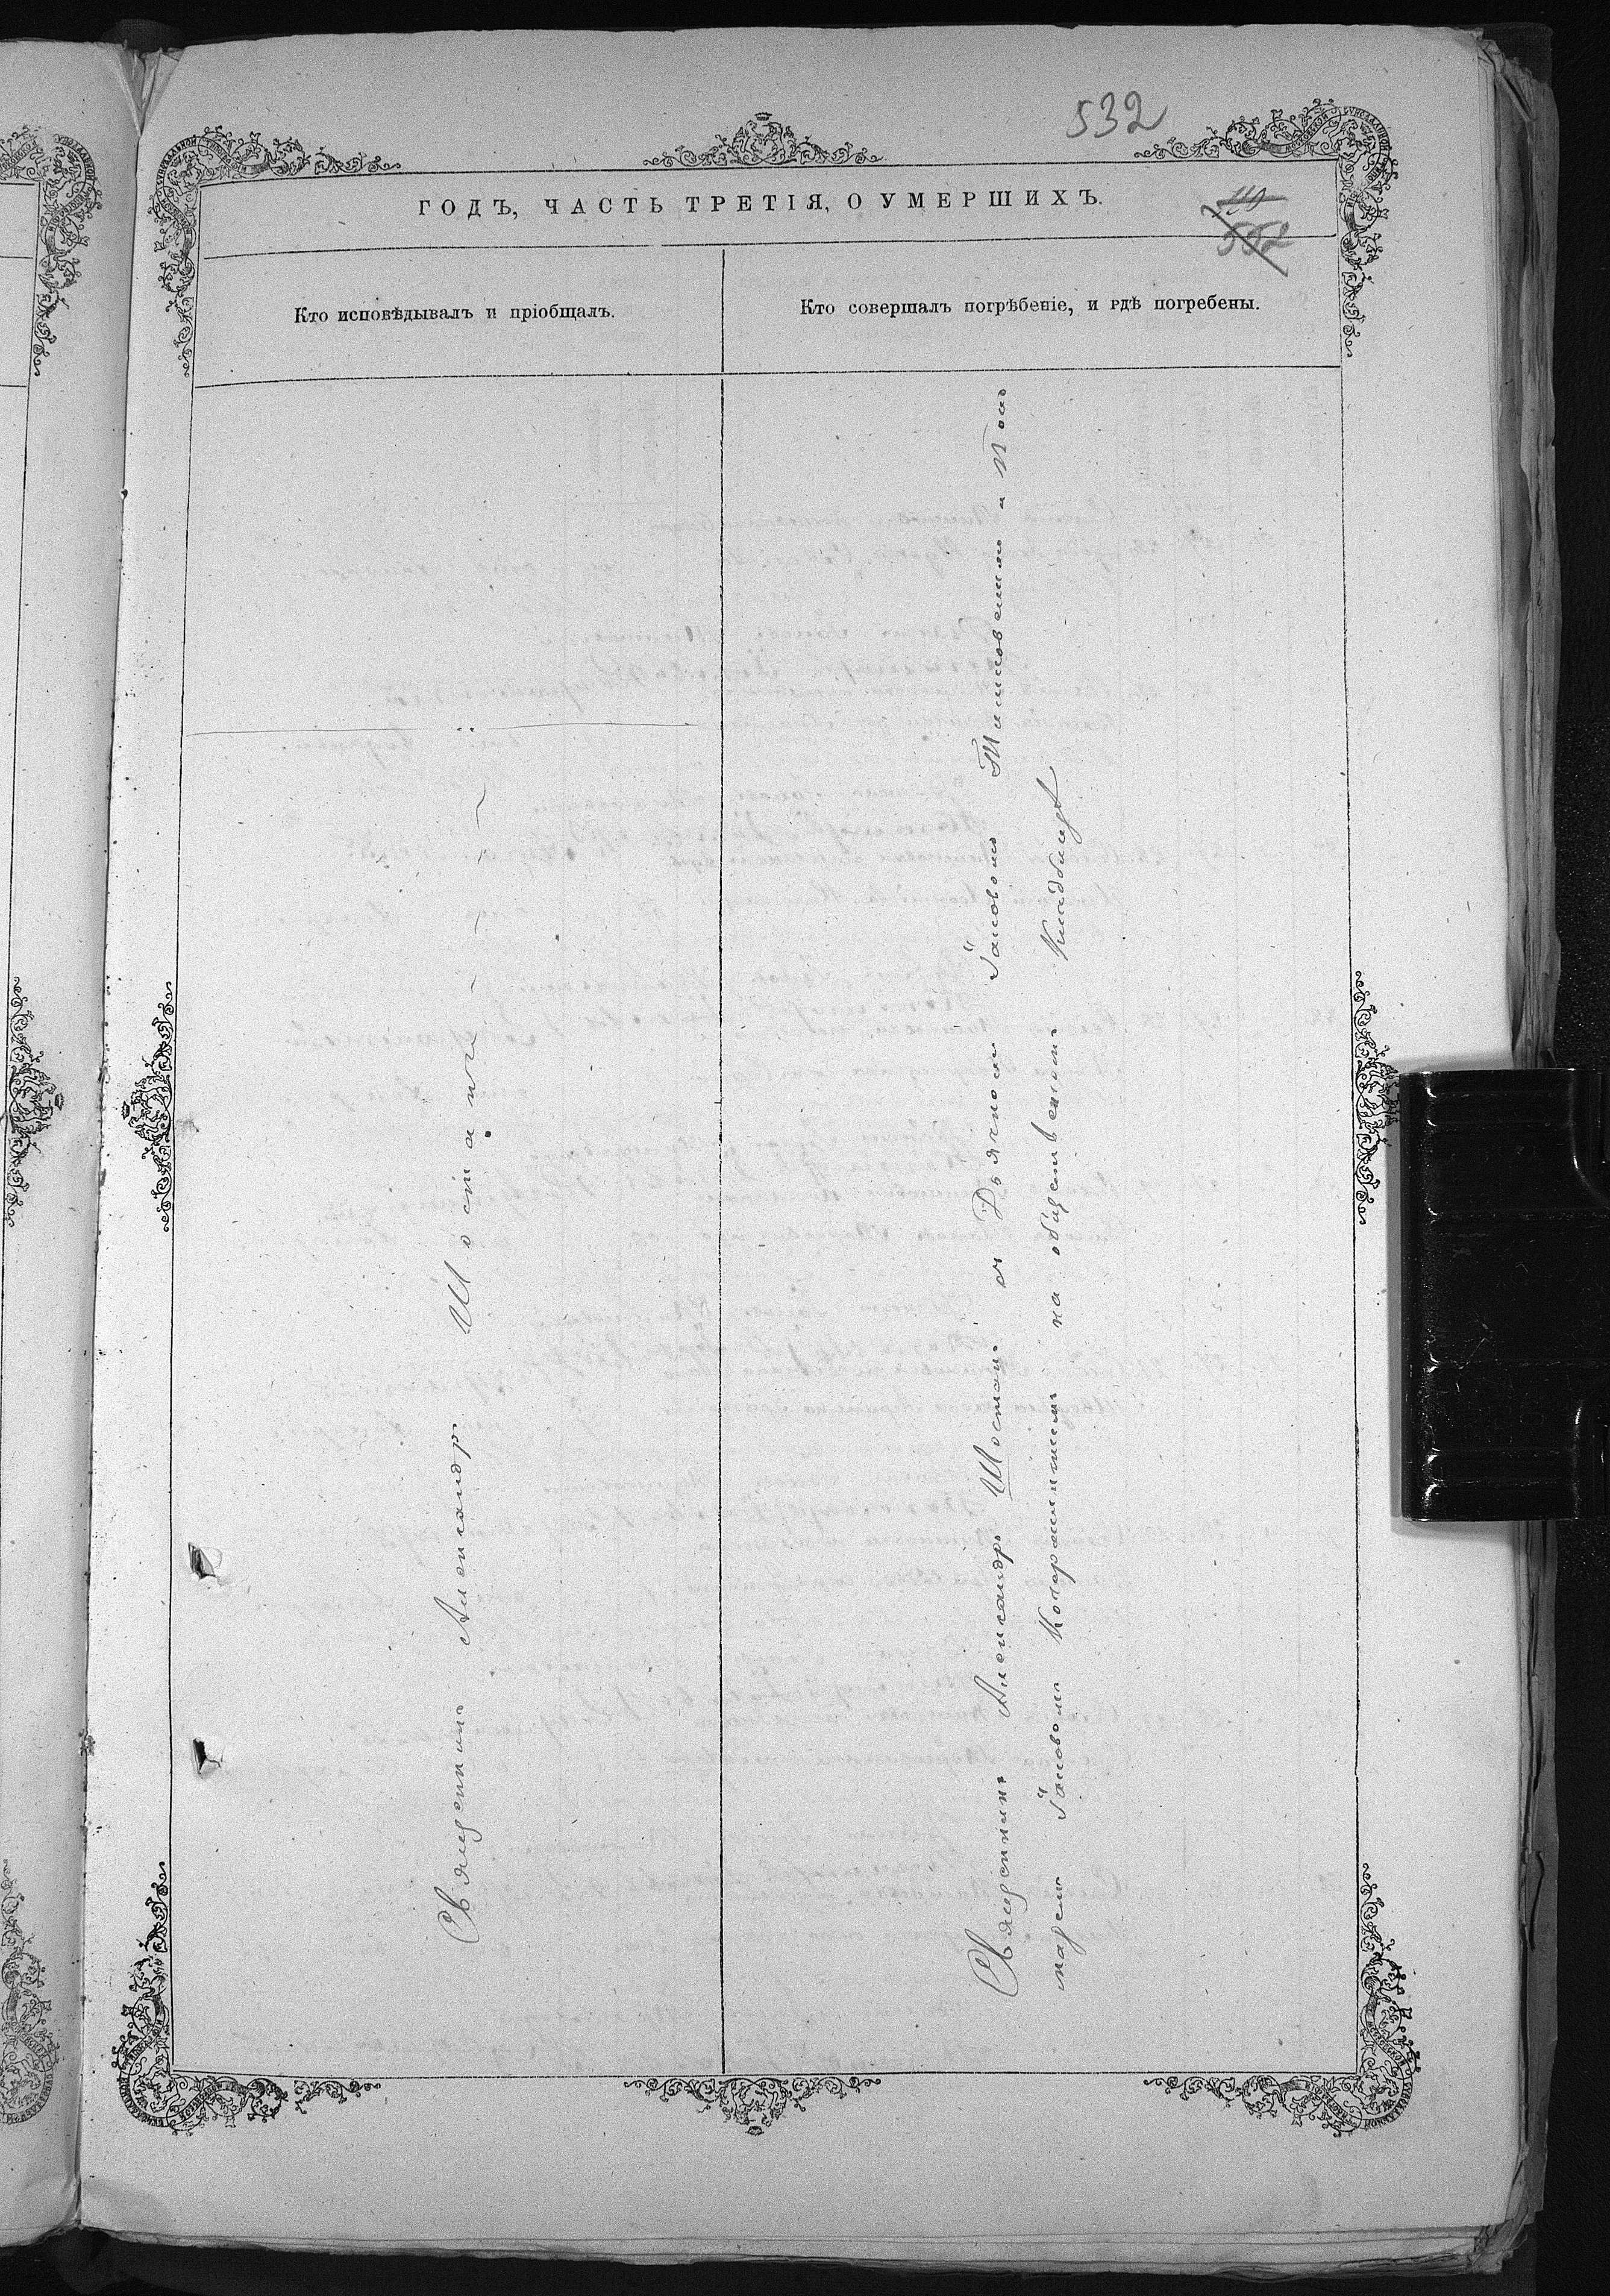 532
ГОДЪ, ЧАСТЬ ТРЕТІЯ, О УМЕРШИХЪ.
110
552
Кто исповѣдывалъ и пріобщалъ.
Кто совершалъ погрѣбеніе, и гдѣ погребены.
Священникъ Александр Шостакъ
Священникъ Александръ Шостакъ съ Дьячкомъ Іаковомъ и Поно
маремъ Іаковомъ на общественномъ Кладбищѣ